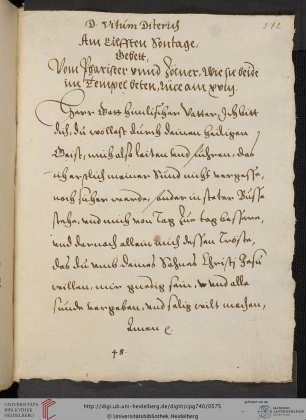 312
D. Vitum Diterich
Am Eilfften Sontage,
Gebett,
Vom Phariseer vnnd Zölner, Wie sie beide
im Tempel beten, Luce am xviij.
Herr Gott himlischer Vatter, Ich bitt
dich, du wollest durch deinen heiligen
Geist, mich also leiten vnd führen, das
ich herzlich meiner Sünd nicht vergesse,
noch sicher werde, sonder in steter Busse
stehe, vnd mich von Tag zue tag bessere,
vnd dernach allein mich dessen Tröste,
das du vmb deines Sohnes Christi Jhesu
willen, mir gnedig sein, vnd alle
sünde vergeben, vnd selig wilt machen,
Amen
48
UNIVERSITÄTS-
BIBLIOTHEK
HEIDELBERG
http://digi.ub.uni-heidelberg.de/diglit/cpg740/0575
© Universitätsbibliothek Heidelberg